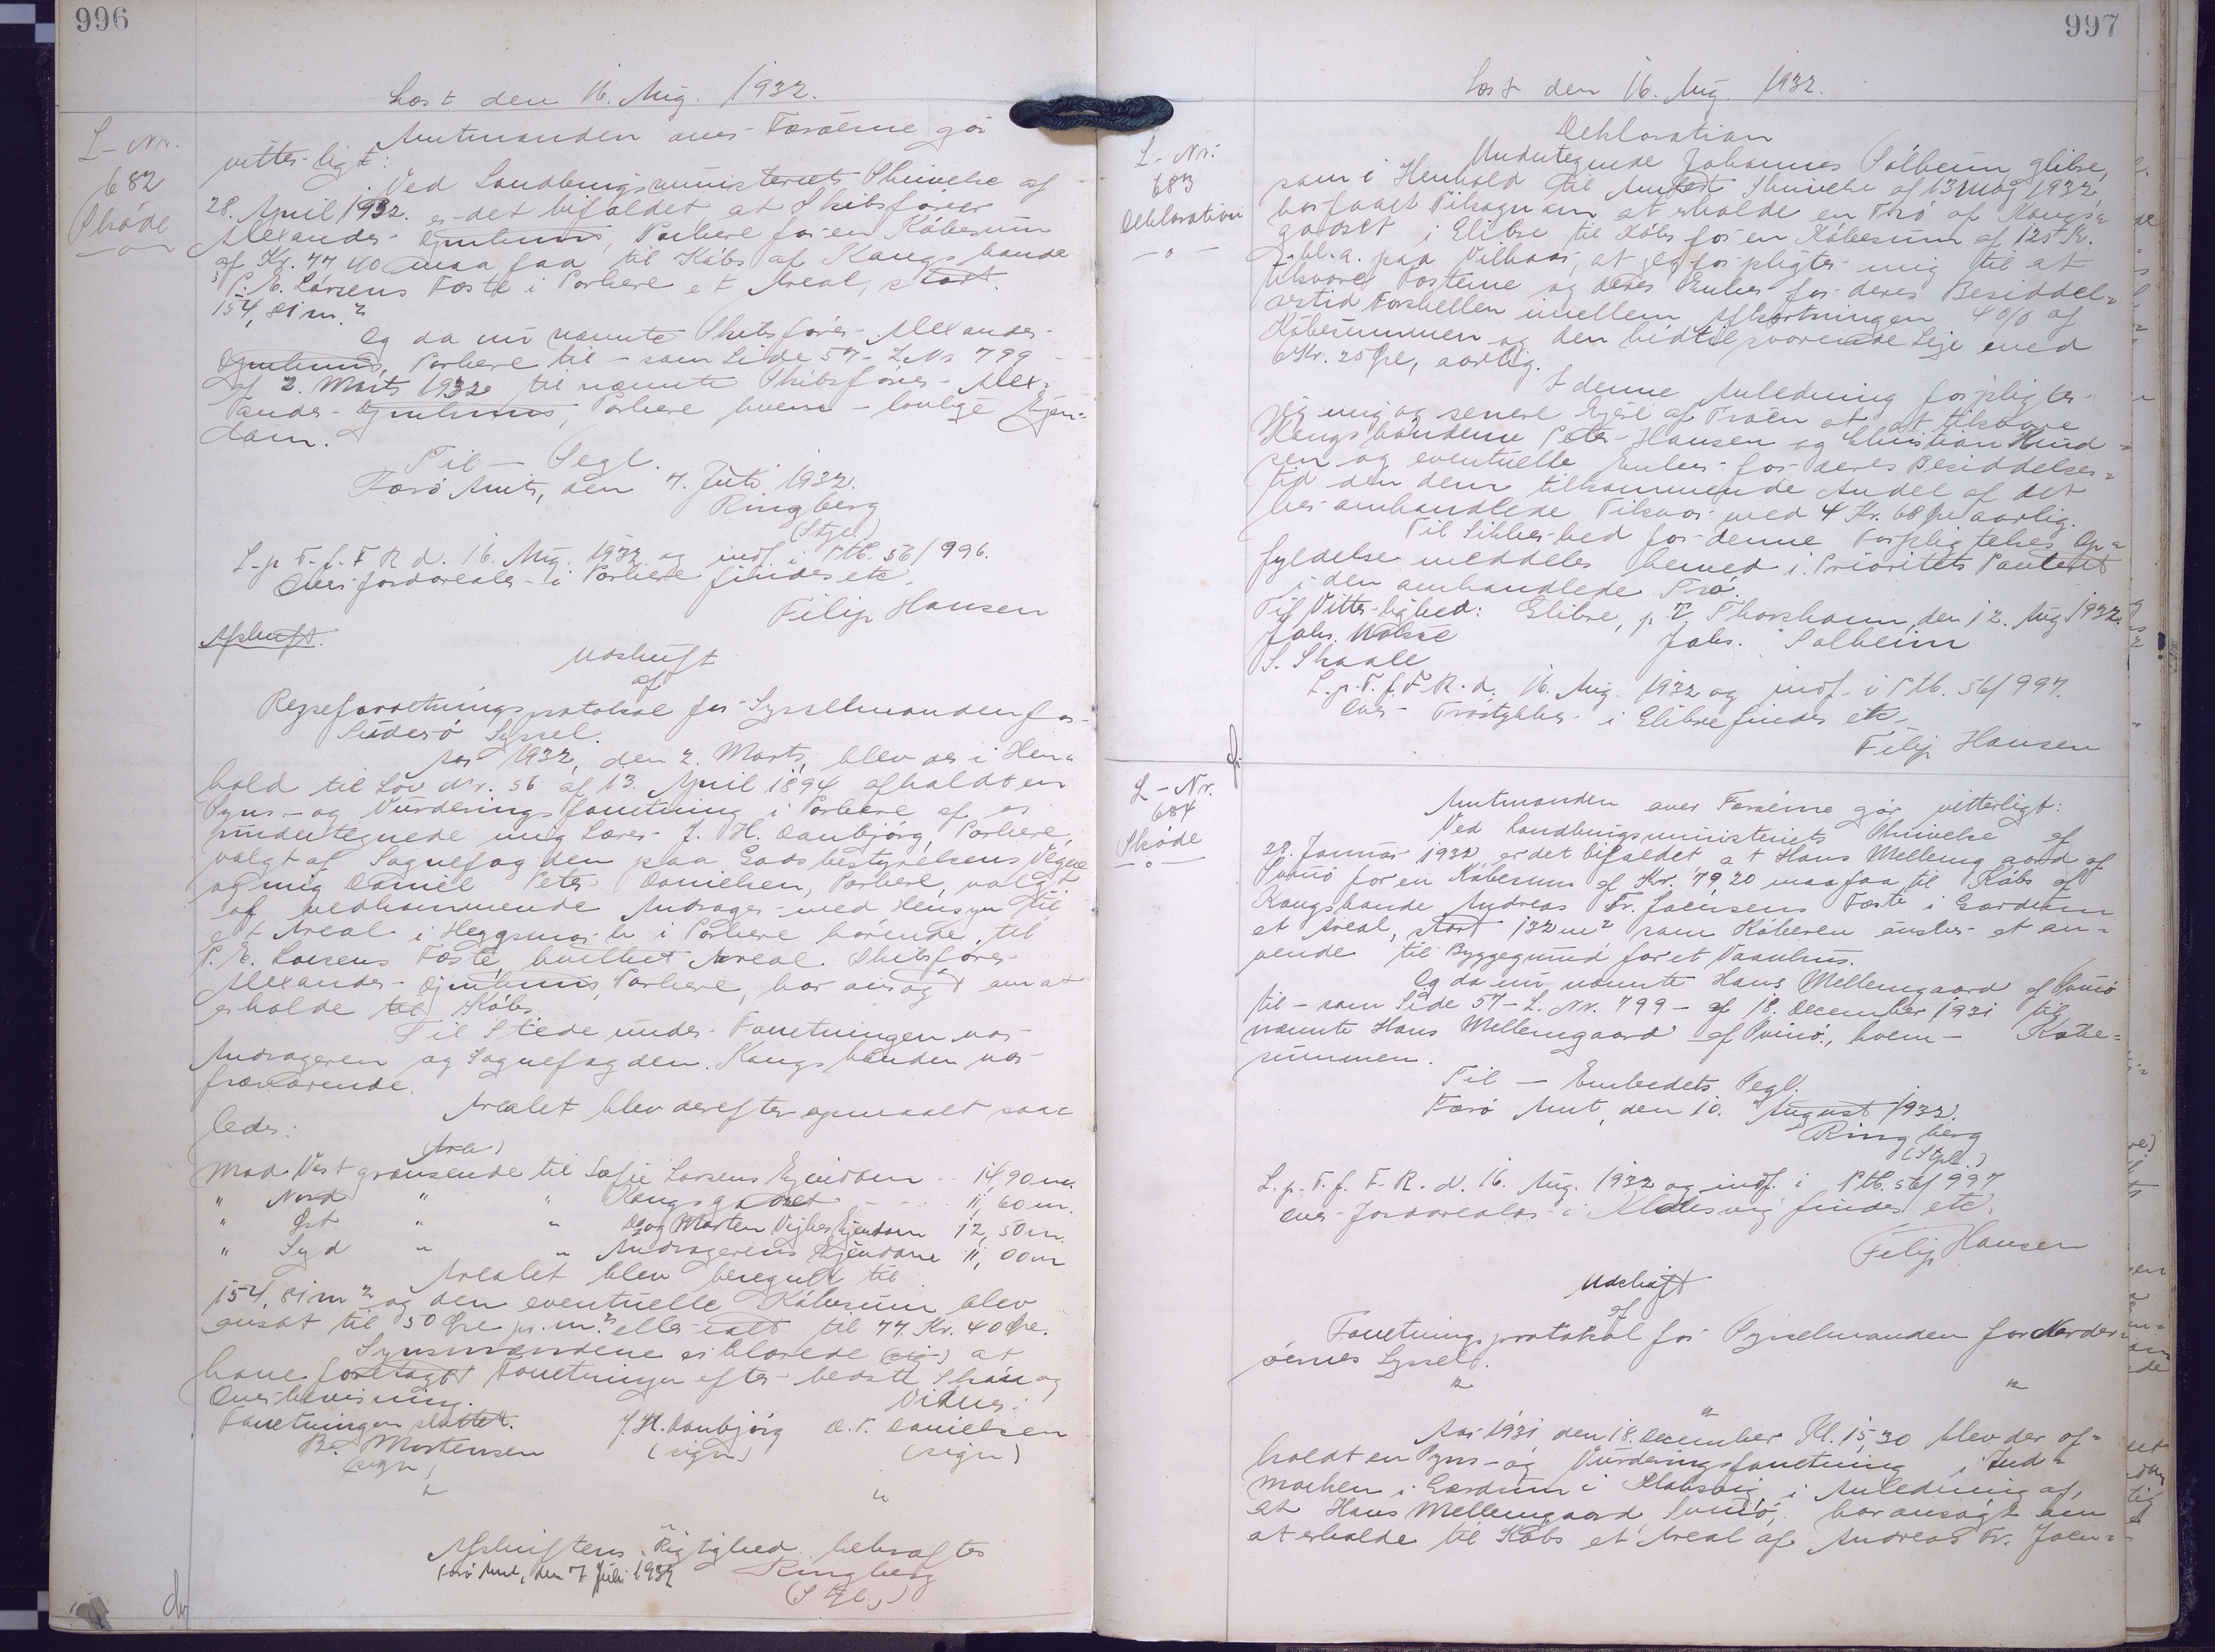 996
Læst den 16. Aug. 1932.
L-Nr.
682
Skøde
Amtmanden over Færøerne gør
vitterligt:
Ved Landbrugsministeriets Skrivelse af
28. April 1932. er det bifaldet at Skibsfører
Alexander Djurhuus, Porkere for en Købesum
af Kr. 77 40 maa faa til Købs af Kongsbonde
P. E. Larsens Fæste i Porkere et Areal, stort
154,81 m.2
Og da nu nævnte Skibsfører Alexander
Djurhuus, Porkere til - som Side 57 - L.Nr 799
af 2. Marts 1932 til nævnte Skibsfører Alex=
ander Djurhuus, Porkere hvem - lovlige Ejen=
dom.
Til - Segl.
Færø Amt, den 7. Juli 1932.
Ringberg
(Stpl)
L. p. T. f. F R d. 16. Aug. 1932 og indf. i Ptb. 56/996.
Over Jordarealer i Porkere findes etc.
Filip Hansen
Afskrift.
Udskrift
af
Rejseforretningsprotokol for Sysselmanden for
Suderø Syssel.
Aar 1932, den 2. Marts, blev der i Hen=
hold til Lov Nr. 56 af 13. April 1894 afholdt en
Syns- og Vurderingsforretning i Porkere af os
undertegnede mig Lærer J. H. Danbjørg, Porkere,
valgt af Sognefogden paa Godsbestyrelsens Vegne
og mig Daniel Peter Danielsen, Porkere, valgt
af vedkommende Andrager med Hensyn til
et Areal i Heggsmark i Porkere hørende til
P. E. Larsens Fæste, hvilket Areal Skibsfører
Alexander Djurhuus, Porkere, har ansøgt om at
erholde til Købs.
Til Stede under Forretningen var
Andrageren og Sognefogden. Kongsbonden var
fraværende.
Arealet blev derefter opmaalt saa=
ledes:
(Area)
Mod Vest grænsende til Sofie Larsens Ejendom .. 14,90 m.
" Nord " " Kongsgodset - - - 11,60 m.
" Øst " " Do og Morten Vejhes Ejendom 12,50 m.
" Syd " " Andragerens Ejendom 11,00 m
Arealet blev beregnet til
154,81 m2 og den eventuelle Købesum blev
ansat til 50 Øre pr. m.2 eller ialt til 77 Kr. 40 Øre.
Synsmændene erklærede (sig) at
have foretaget Forretningen efter bedste Skøn og
Overbevisning.
Vidner:
Forretningen sluttet.
J. H. Danbjørg D. P. Danielsen
B. Mortensen (sign) (sign)
(sign)
" "
Afskriftens Rigtighed bekræftes
Færø Amt, den 7 Juli 1932 Ringberg
(Stpl.)
997
Læst den 16. Aug. 1932.
L-Nr.
683
Deklaration
Deklaration
Undertegnede Johannes Sólheim Glibre,
som i Henhold til Amtets Skrivelse af 13 Maj 1932,
har faaet Tilsagn om at erholde en Trø af Kongs=
godset i Glibre til Købs for en Købesum af 125 Kr.
bl. a. paa Vilkaar, at jeg forpligter mig til at
tilsvare Fæsterne og deres Enker for deres Besiddel=
sestid Forskellen imellem Afkortningen 4 0/0 af
Købesummen og den hidtilsvarende Leje med
6 Kr. 25 Øre, aarlig.
I denne Anledning forpligter
jeg mig og senere Ejere af Trøen at at tilsvare
Kongsbønderne Peter Hansen og Christian Knud=
sen og eventuelle Enker for deres Besiddelses=
tid den dem tilkommende Andel af det
her omhandlede Tilsvar med 4 Kr. 68 Øre aarlig.
Til Sikkerhed for denne Forpligtelses Op=
fyldelse meddeles herved 1. Prioritets Panteret
i den omhandlede Trø.
Til Vitterlighed: Glibre, p. T. Thorshavn, den 12. Aug 1932.
Johs. Wolsæ Johs. Solheim
S. Skaale
L. p. T. f. F. R. d. 16. Aug. 1932 og indf. i Ptb. 56/997.
Over Trøstykker i Glibre findes etc.
Filip Hansen
L-Nr.
684
Skøde
Amtmanden over Færøerne gør vitterligt:
Ved Landbrugsministeriets Skrivelse af
28. Januar 1932 er det bifaldet at Hans Mellemgaard af
Svinø for en Købesum af Kr. 79,20 maa faa til Købs af
Kongsbonde Andreas Fr. Joensens Fæste i Gærdum
et Areal, stort 132 m2 som Køberen ønsker at an=
vende til Byggegrund for et Vaanhus.
Og da nu nævnte Hans Mellemgaard af Svinø
til - som Side 57 - L. Nr. 799 - af 18. December 1931 til
nævnte Hans Mellemgaard af Svinø, hvem - Købe=
summen.
Til - Embedets Segl.
Færø Amt, den 10. August 1932.
Ringberg
(Stpl.)
L. p. T. f. F. R. d. 16. Aug. 1932 og indf. i Ptb. 56/997
Over Jordarealer i Klaksvig findes etc.
Filip Hansen
Udskrift
af
Forretningsprotokol for Sysselmanden for Norder=
øernes Syssel.
" " "
Aar 1931 den 18. December Kl. 15,30 blev der af=
holdt en Syns- og Vurderingsforretning i Ind=
marken i Gærdum i Klaksvig i Anledning af,
at Hans Mellemgaard, Svinø, har ansøgt om
at erholde til Købs et Areal af Andreas Fr. Joen=